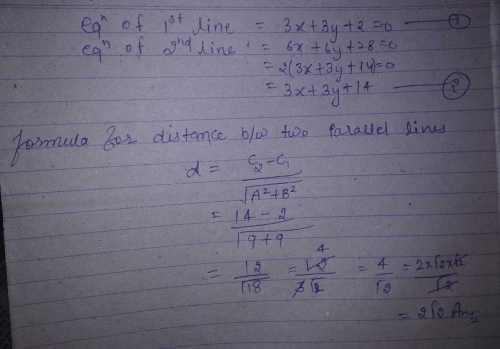 eqn of 1st line = 3x+3y+2=0 — ①
eqn of 2nd line = 6x+6y+28=0
= 2(3x+3y+14)=0
= 3x+3y+14 — ②
formula for distance b/w two parallel lines
d = C2-C1 / √A²+B²
= 14-2 / √9+9
= 12/√18 = 12/3√2 4 = 4/√2 = 2x√2x√2/√2
= 2√2 Ans